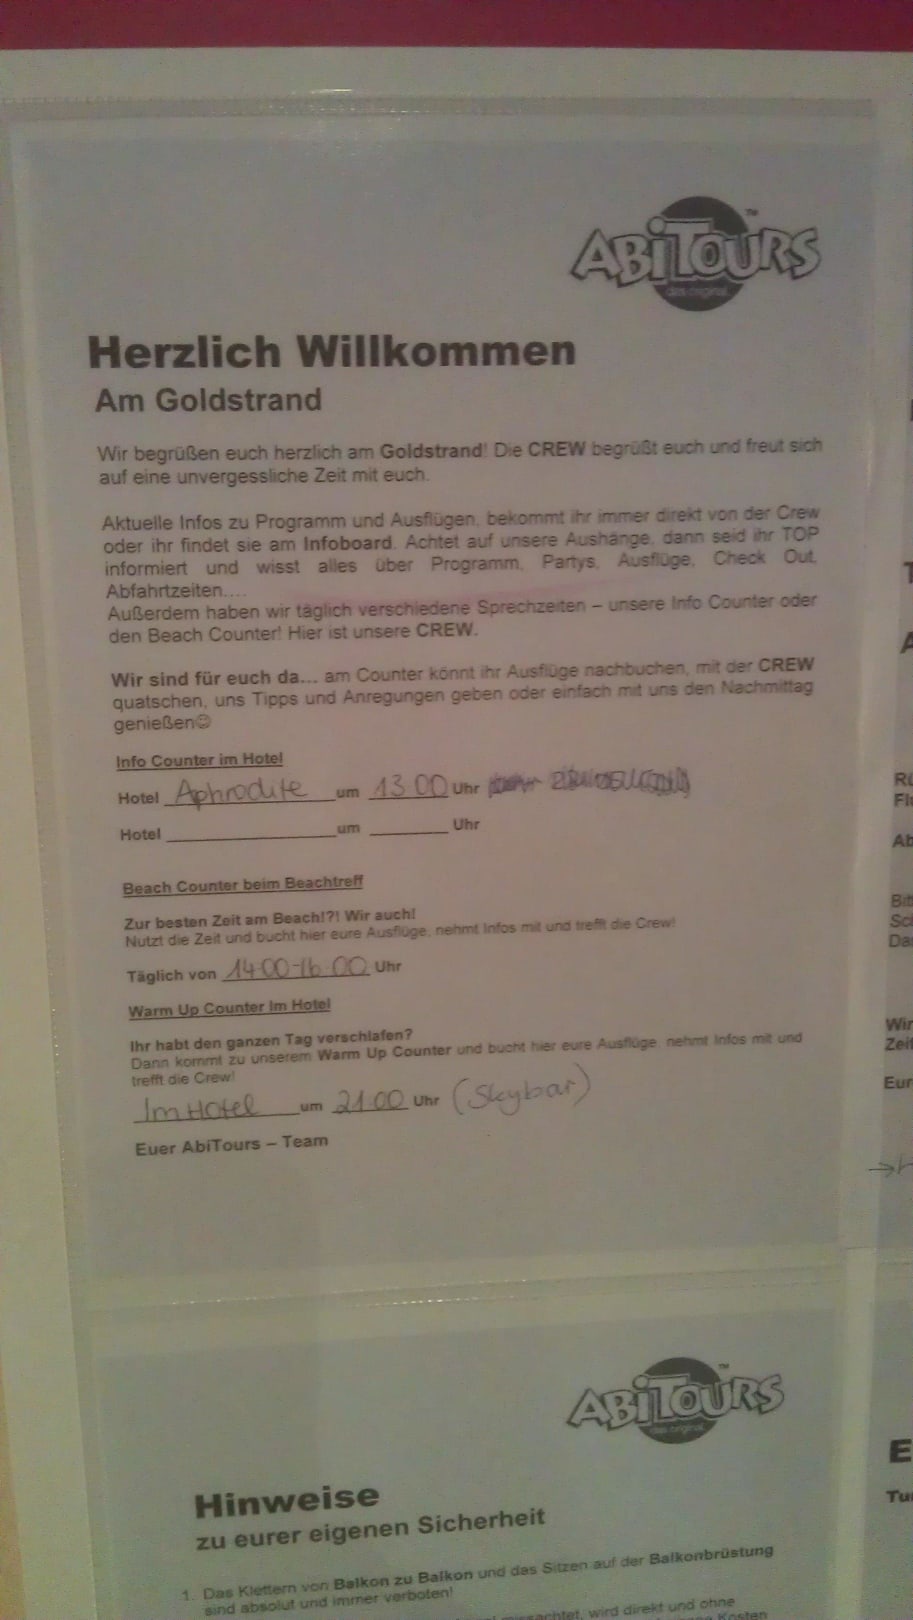 ABiTOURS™
das original
Herzlich Willkommen
Am Goldstrand
Wir begrüßen euch herzlich am Goldstrand! Die CREW begrüßt euch und freut sich
auf eine unvergessliche Zeit mit euch.
Aktuelle Infos zu Programm und Ausflügen, bekommt ihr immer direkt von der Crew
oder ihr findet sie am Infoboard. Achtet auf unsere Aushänge, dann seid ihr TOP
informiert und wisst alles über Programm, Partys, Ausflüge, Check Out,
Abfahrtzeiten....
Außerdem haben wir täglich verschiedene Sprechzeiten – unsere Info Counter oder
den Beach Counter! Hier ist unsere CREW.
Wir sind für euch da... am Counter könnt ihr Ausflüge nachbuchen, mit der CREW
quatschen, uns Tipps und Anregungen geben oder einfach mit uns den Nachmittag
genießen☺
Info Counter im Hotel
Hotel Aphrodite um 13:00 Uhr
Hotel ____________ um ______ Uhr
Beach Counter beim Beachtreff
Zur besten Zeit am Beach!?! Wir auch!
Nutzt die Zeit und bucht hier eure Ausflüge, nehmt Infos mit und trefft die Crew!
Täglich von 14:00-16:00 Uhr
Warm Up Counter Im Hotel
Ihr habt den ganzen Tag verschlafen?
Dann kommt zu unserem Warm Up Counter und bucht hier eure Ausflüge, nehmt Infos mit und
trefft die Crew!
Im Hotel um 21:00 Uhr (Skybar)
Euer AbiTours – Team
ABiTOURS™
das original
Hinweise
zu eurer eigenen Sicherheit
1. Das Klettern von Balkon zu Balkon und das Sitzen auf der Balkonbrüstung
sind absolut und immer verboten!
wird direkt und ohne
Kosten